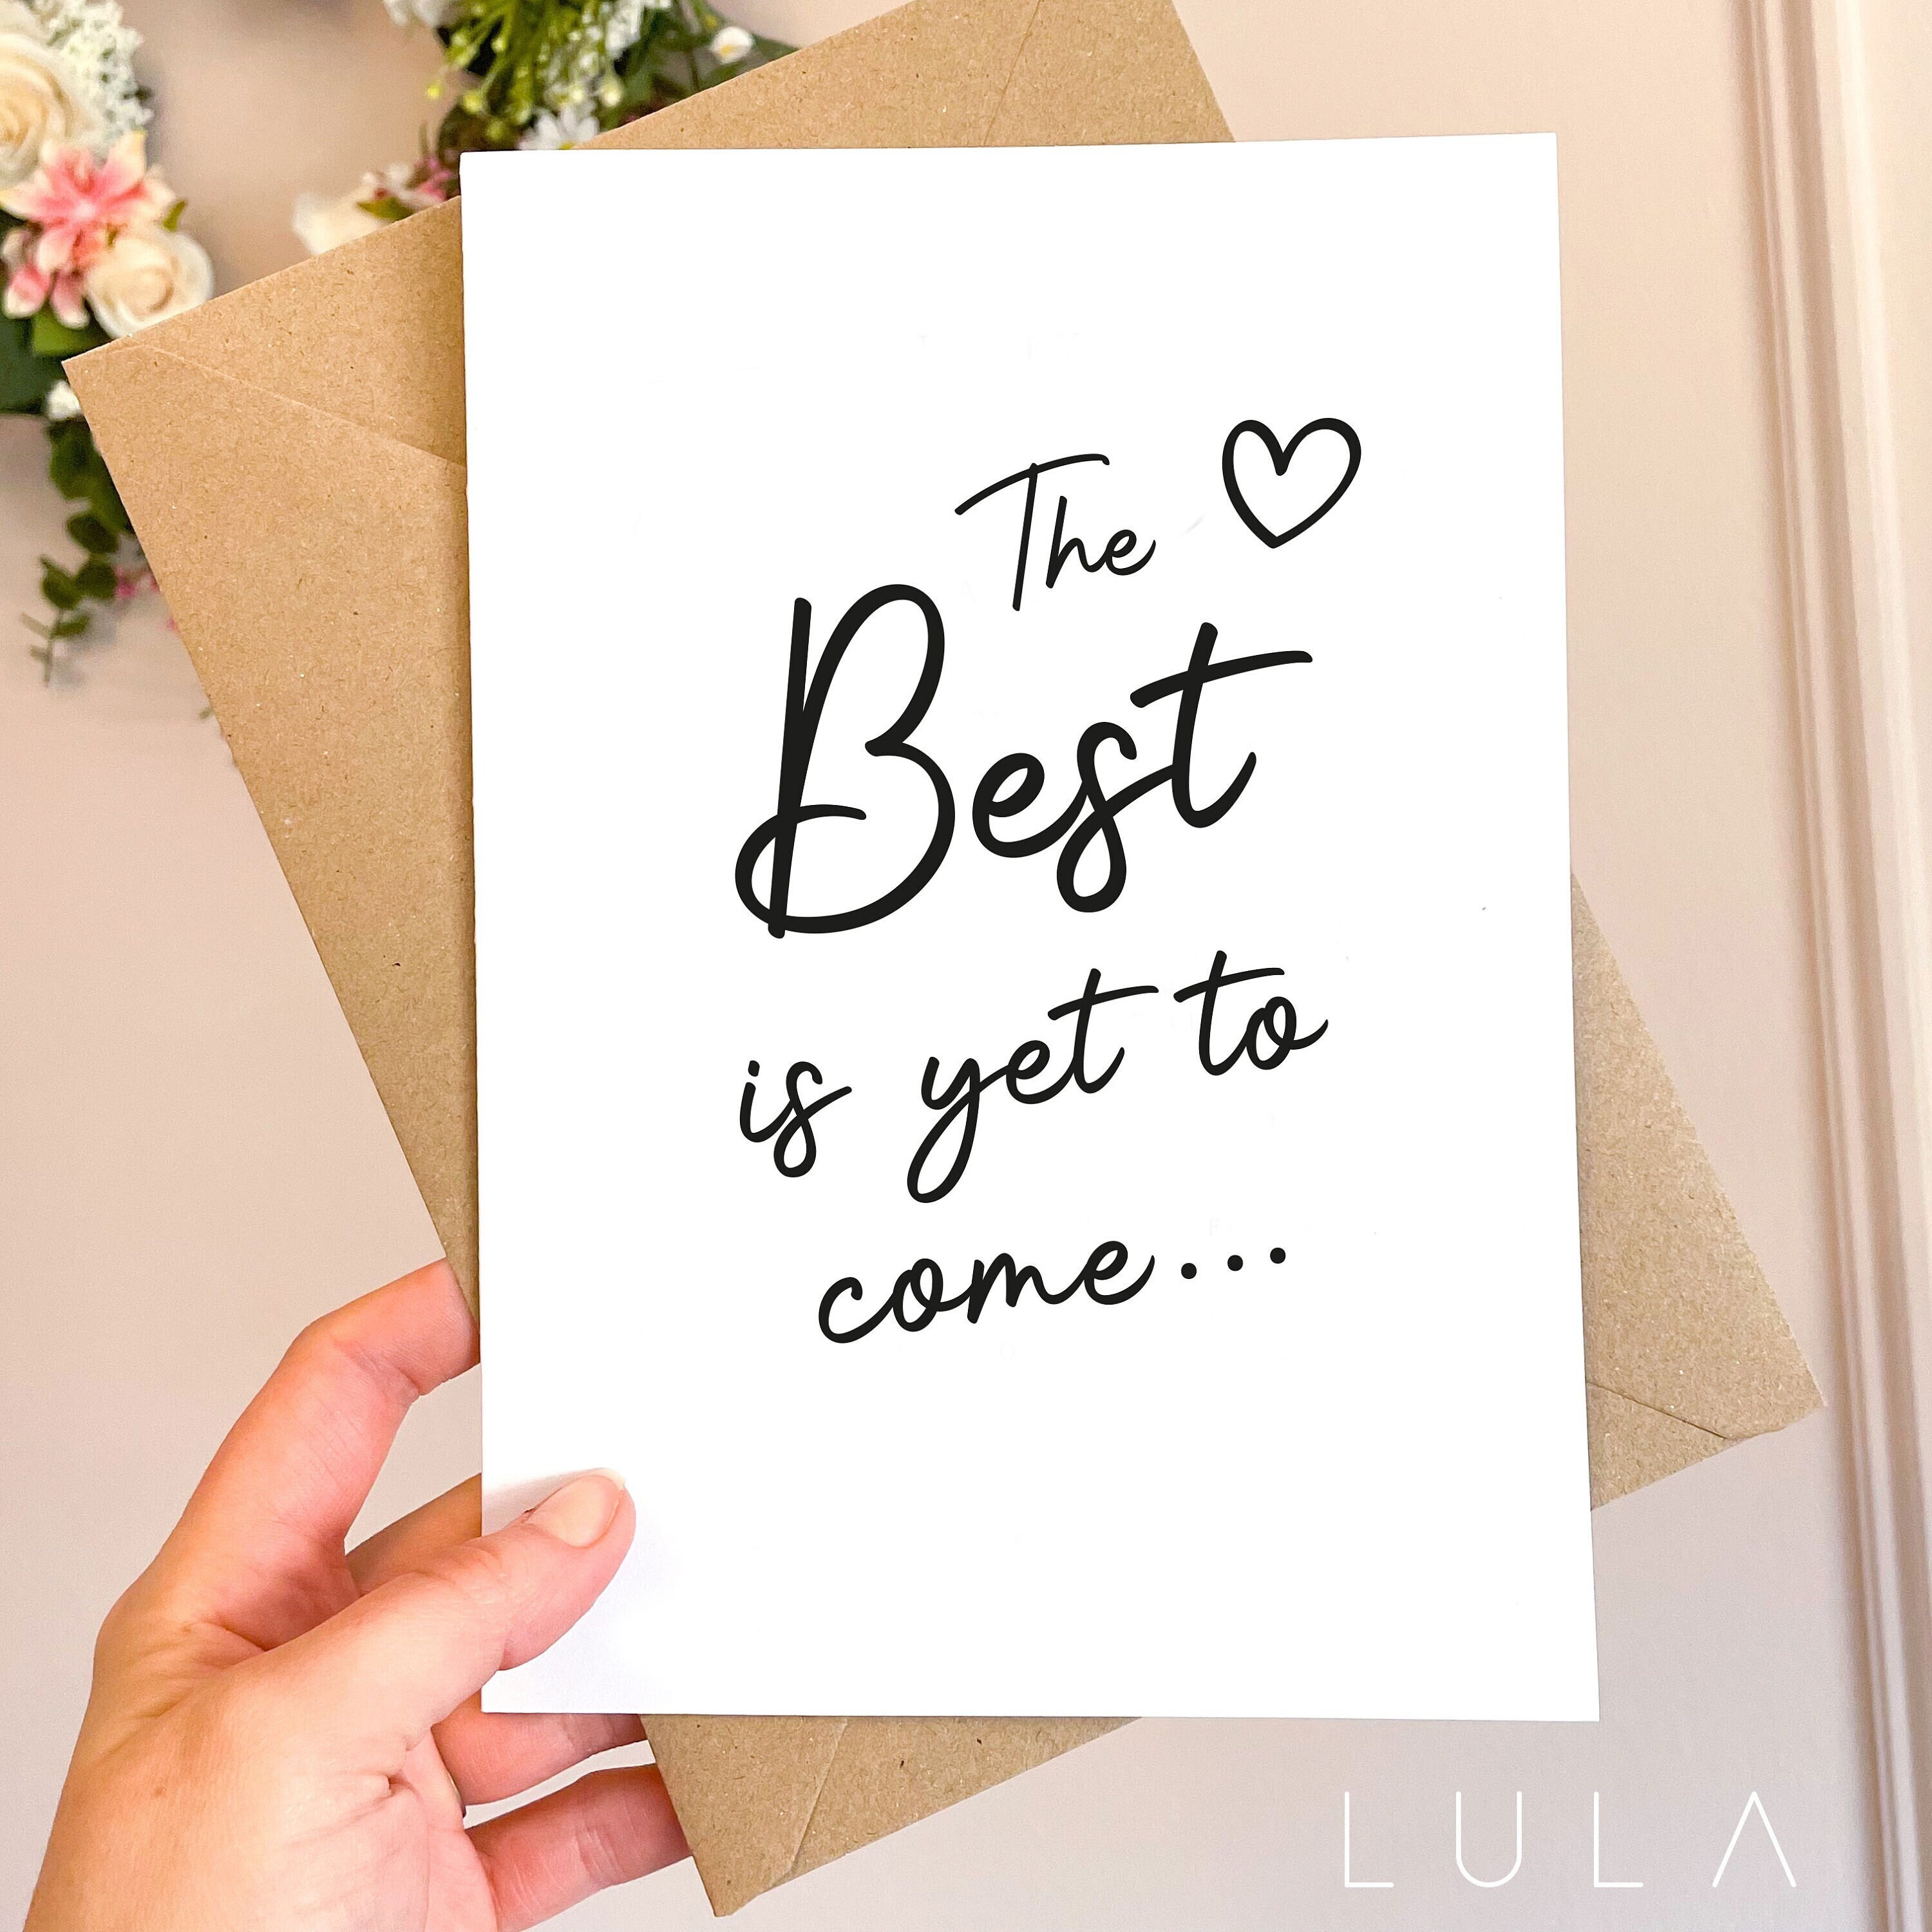 The
Best
is yet to
come...
LULA